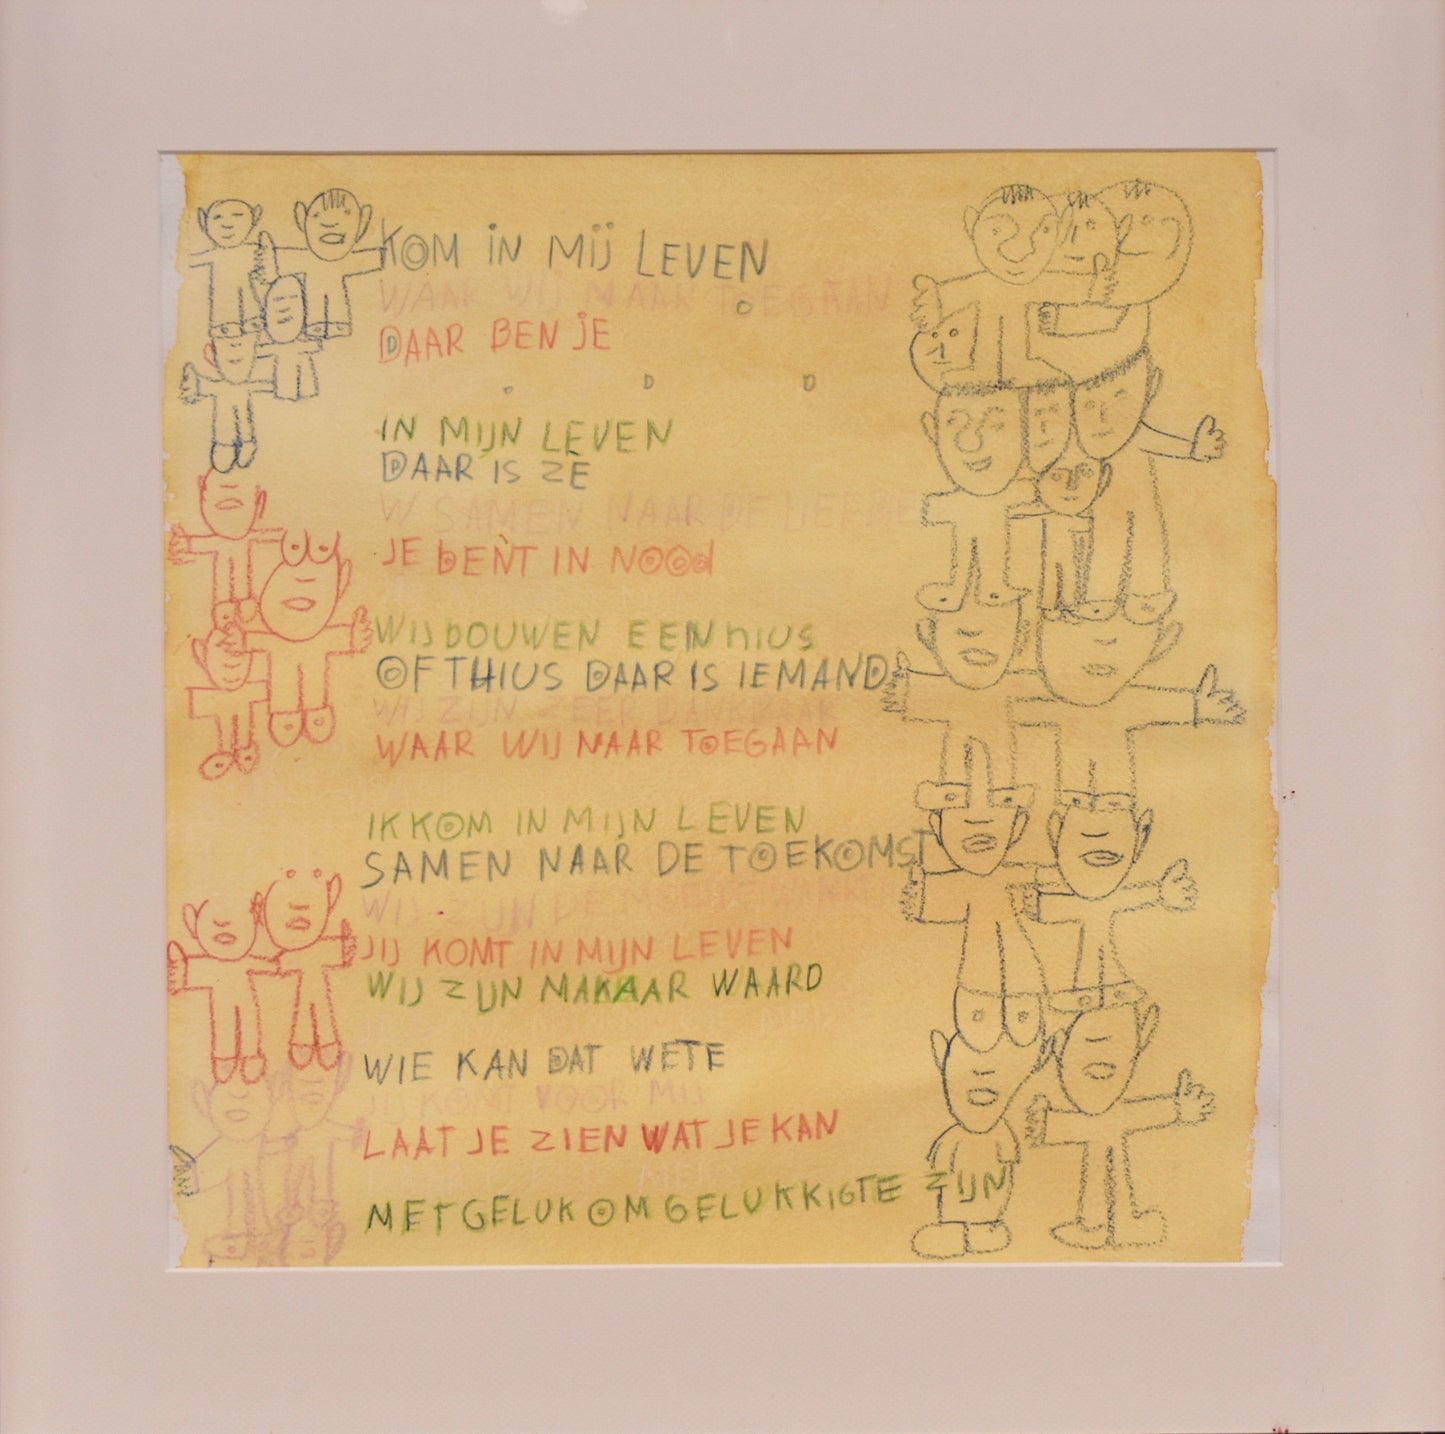 KOM IN MIJ LEVEN
WAAR WIJ NAAR TOEGAAN
DAAR BEN JE
IN MIJN LEVEN
DAAR IS ZE
SAMEN NAAR DE LIEFDE
JE BENT IN NOOD
WIJ BOUWEN EEN HIUS
OF THIUS DAAR IS IEMAND
WIJ ZIJN ZEER DANKBAAR
WAAR WIJ NAAR TOEGAAN
IK KOM IN MIJN LEVEN
SAMEN NAAR DE TOEKOMST
WIJ ZIJN
JIJ KOMT IN MIJN LEVEN
WIJ ZIJN MAKAAR WAARD
WIE KAN DAT WETE
VOOR MIJ
LAAT JE ZIEN WAT JE KAN
MET GELUK OM GELUKKIGTE ZIJN